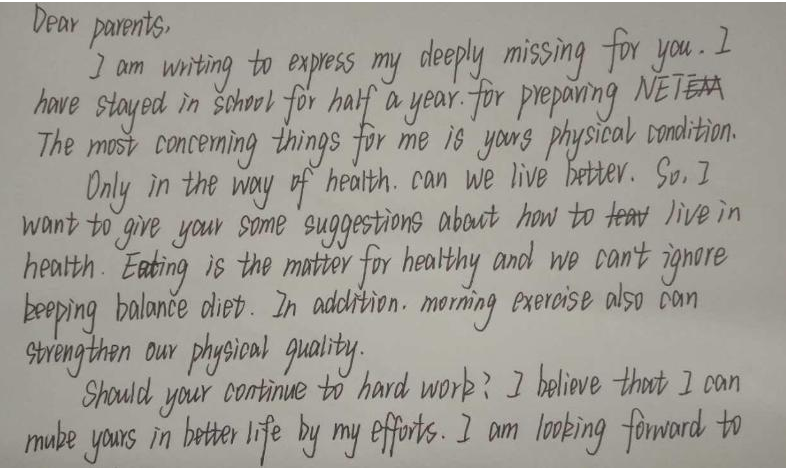 Dear parents,
I am writing to express my deeply missing for you. I
have stayed in school for half a year. for preparing NETEM
The most concerning things for me is yours physical condition.
Only in the way of health. can we live better. So, I
want to give your some suggestions about how to live in
health. Eating is the matter for healthy and we can't ignore
keeping balance diet. In addition. morning exercise also can
strengthen our physical quality.
Should your continue to hard work? I believe that I can
make yours in better life by my efforts. I am looking forward to